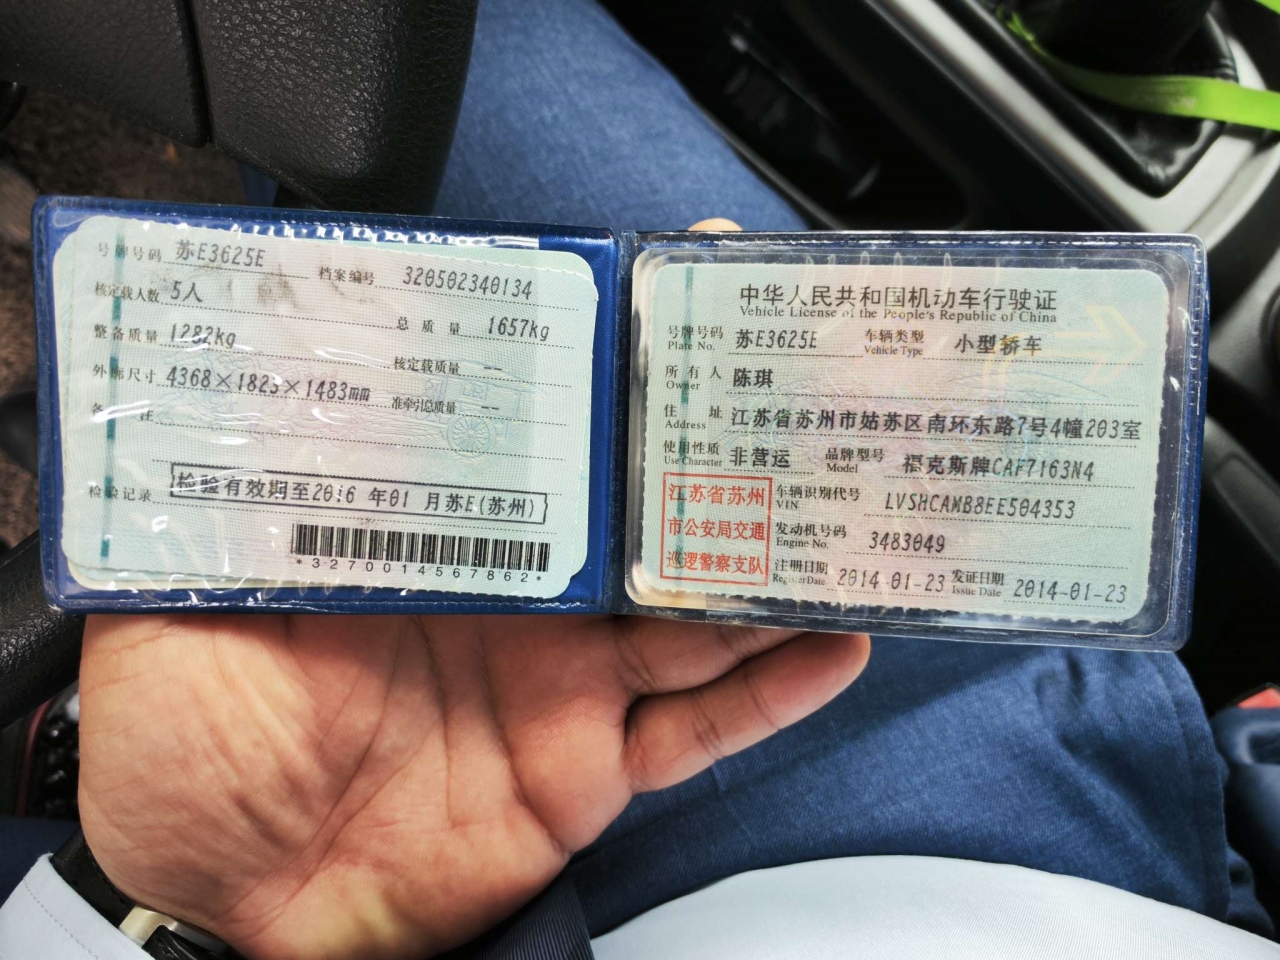 号牌号码 苏E3625E 档案编号 320502340134
核定载人数 5人 总质量 1657kg
整备质量 1282kg 核定载质量 --
外廓尺寸 4368×1823×1483mm 准牵引总质量 --
备注
检验记录 检验有效期至2016 年01 月苏E(苏州)
*3270014567862*
中华人民共和国机动车行驶证
Vehicle License of the People's Republic of China
号牌号码 苏E3625E 车辆类型 小型轿车
Plate No. Vehicle Type
所有人 陈琪
Owner
住址 江苏省苏州市姑苏区南环东路7号4幢203室
Address
使用性质 非营运 品牌型号 福克斯牌CAF7163N4
Use Character Model
江苏省苏州
市公安局交通
巡逻警察支队
车辆识别代号 LVSHCAMB8EE504353
VIN
发动机号码 3483049
Engine No.
注册日期 2014-01-23 发证日期 2014-01-23
Register Date Issue Date